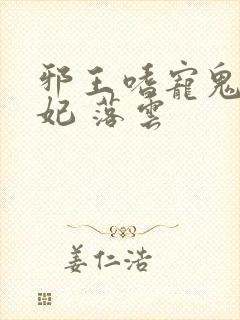 邪王嗜寵鬼
妃 落雲
姜仁浩